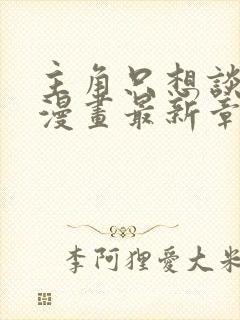 主角只想談
漫畫最新章
李阿狸愛大米